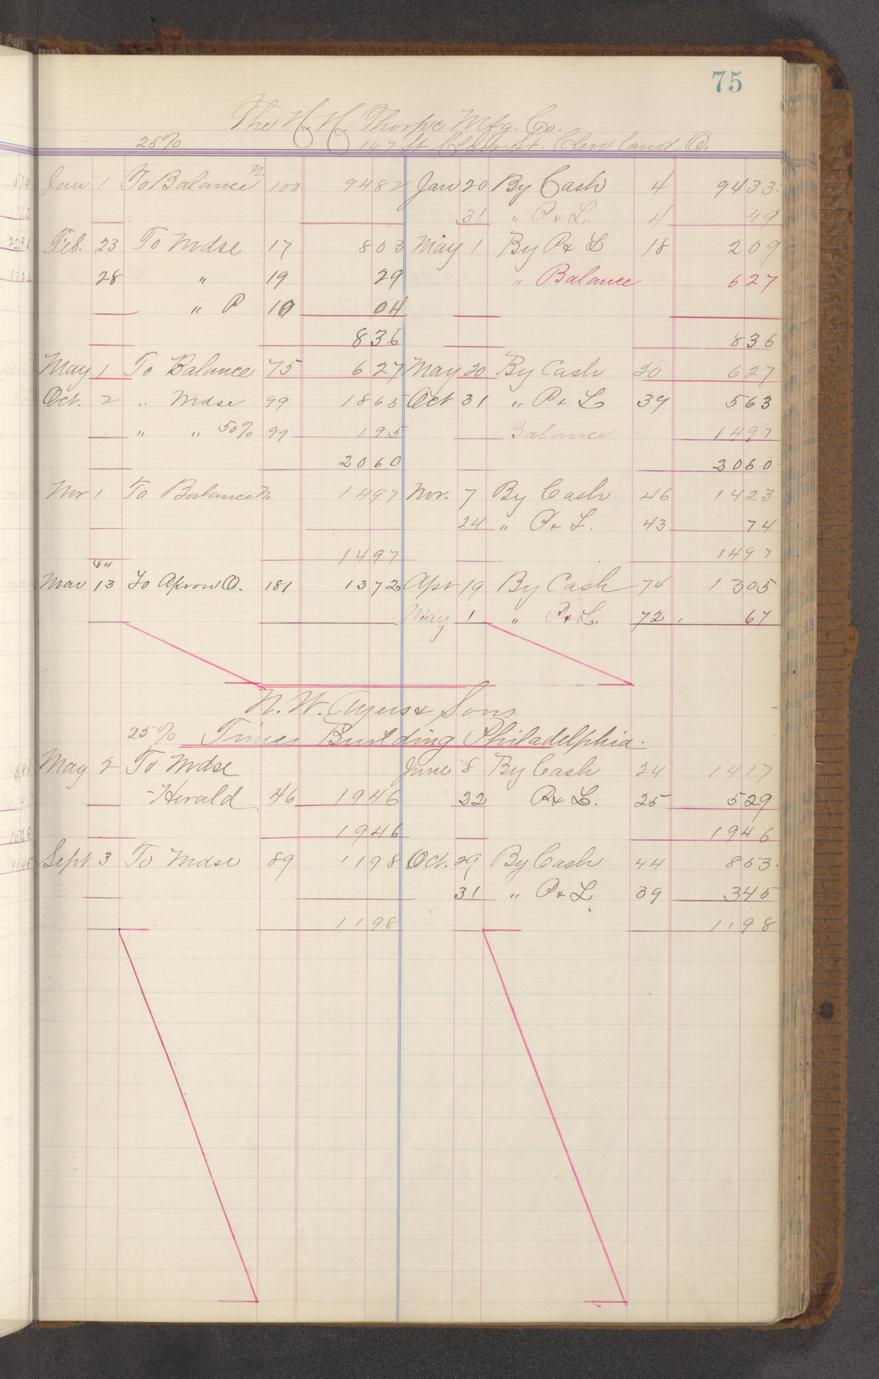 75
The H. H. Thorpe Mfg. Co.
25% 107 St Cleveland O.
Jan 1 To Balance 100 9482 Jan 20 By Cash 4 9433
31 " P & L. 4 49
Feb. 23 To Mdse 17 803 May 1 By P & L 18 209
28 " 19 29 " Balance 627
" P 10 04
836 836
May 1 To Balance 75 627 May 20 By Cash 30 627
Oct. 2 " Mdse 99 1865 Oct 31 " P & L 39 563
" " 50% 99 195 Balance 1497
2060 2060
Nov 1 To Balance 1497 Nov. 7 By Cash 46 1423
24 " P & L. 43 74
1497 1497
Mar 13 To O. 181 1372 Apr 19 By Cash 74 1305
May 1 " P & L. 72 67
N. W. Ayers & Sons
25% Times Building Philadelphia.
May 2 To Mdse June 8 By Cash 24 1417
Herald 46 1946 22 P & L. 25 529
1946 1946
Sept 3 To Mdse 89 1198 Oct. 29 By Cash 44 853
31 " P & L 39 345
1198 1198